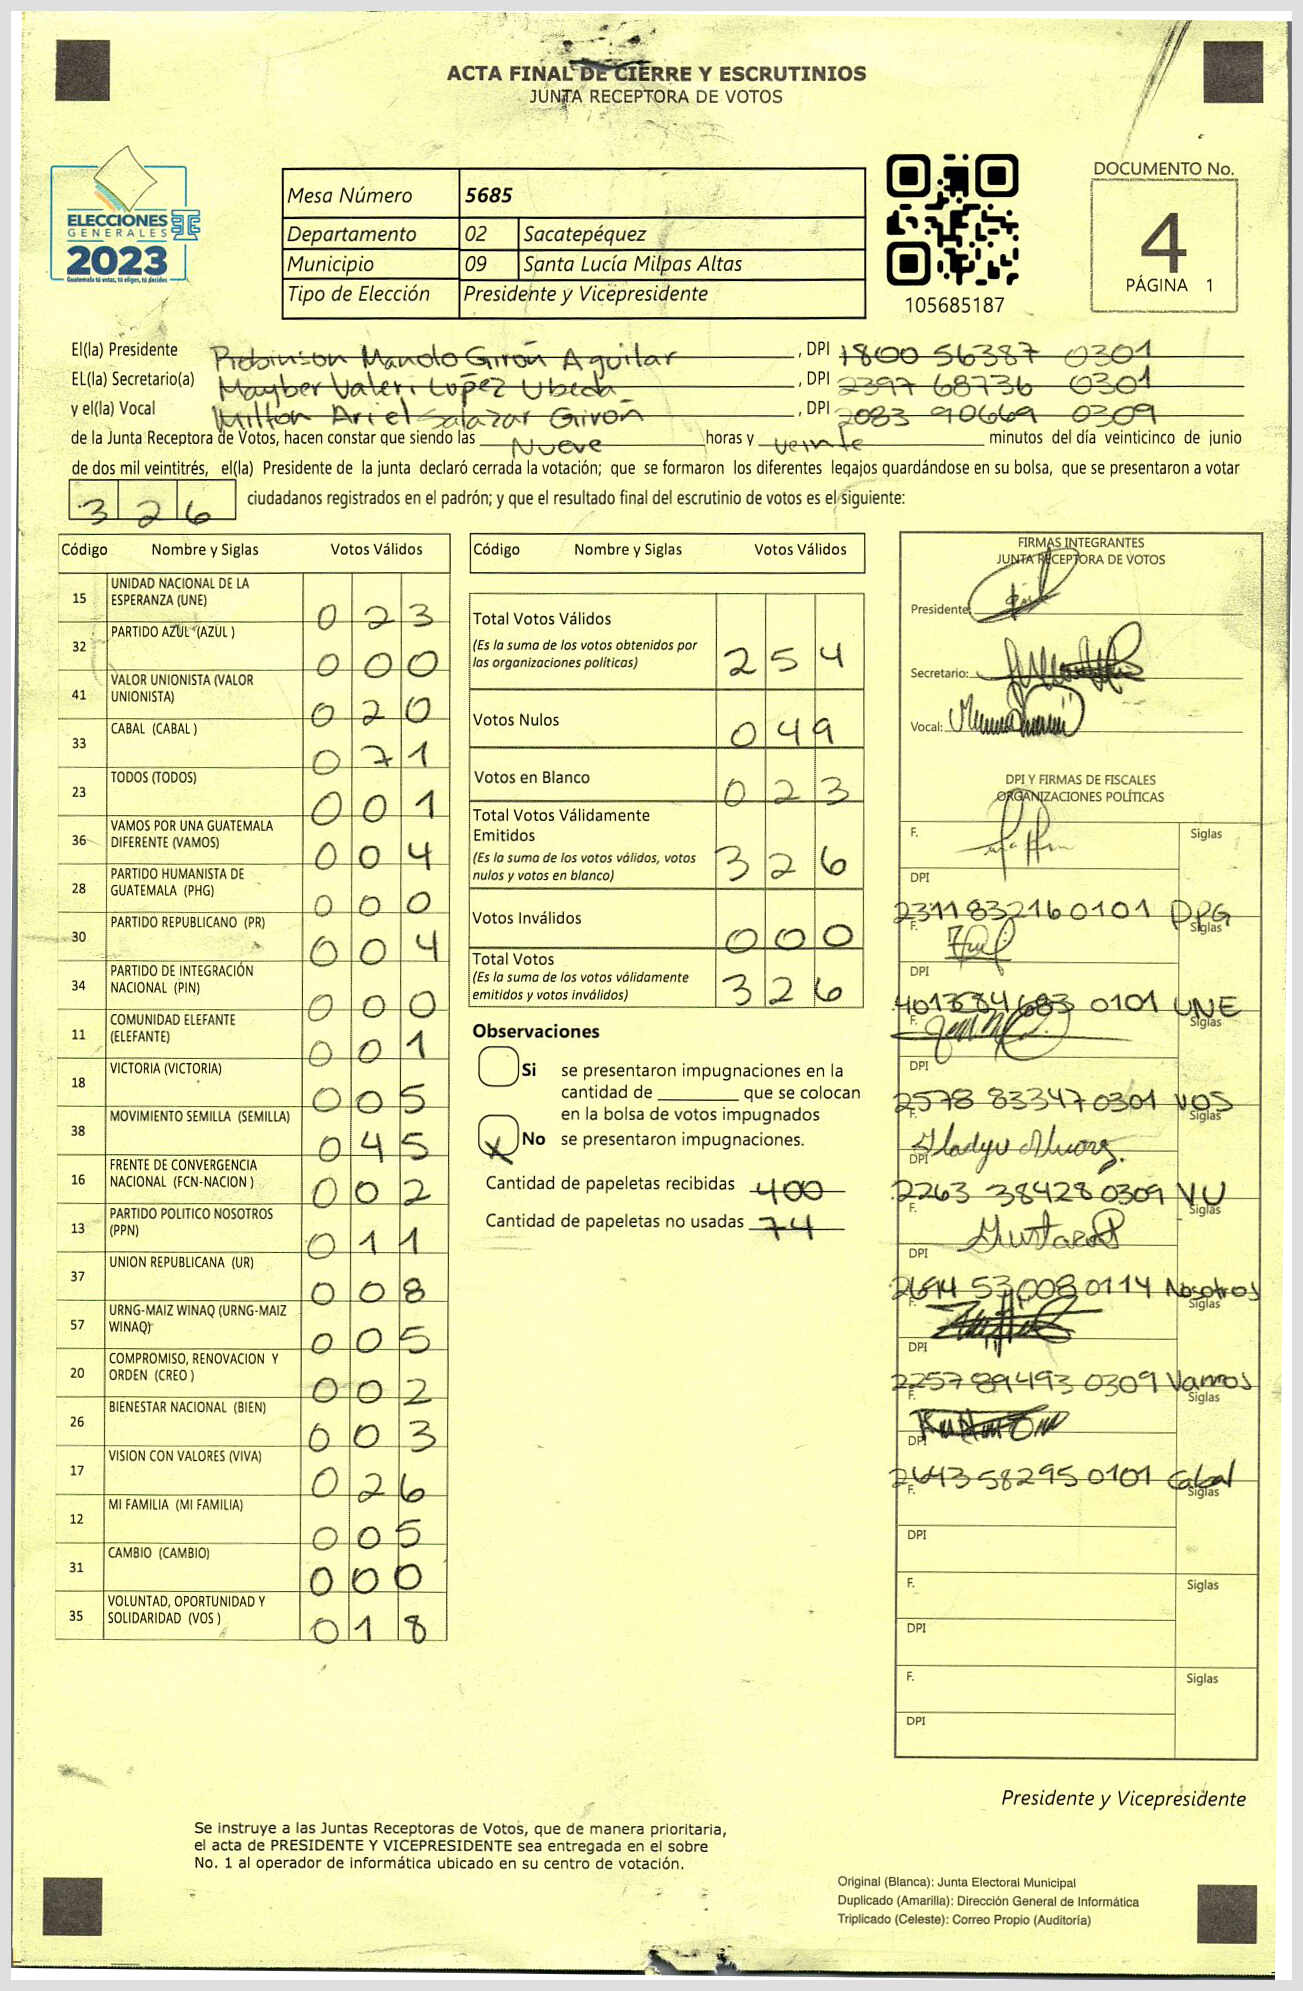 ACTA FINAL DE CIERRE Y ESCRUTINIOS
JUNTA RECEPTORA DE VOTOS
ELECCIONES
GENERALES
2023
Guatemala tú votas, tú eliges, tú decides
Mesa Número 5685
Departamento 02 Sacatepéquez
Municipio 09 Santa Lucía Milpas Altas
Tipo de Elección Presidente y Vicepresidente
105685187
DOCUMENTO No.
4
PÁGINA 1
El(la) Presidente Robinson Manolo Girón Aguilar, DPI 1800 56387 0301
EL(la) Secretario(a) Mayber Valeri López Ubeda, DPI 2397 68736 0301
y el(la) Vocal Milton Ariel Salazar Girón, DPI 2083 90669 0309
de la Junta Receptora de Votos, hacen constar que siendo las Nueve horas y veinte minutos del día veinticinco de junio
de dos mil veintitrés, el(la) Presidente de la junta declaró cerrada la votación; que se formaron los diferentes legajos guardándose en su bolsa, que se presentaron a votar
326 ciudadanos registrados en el padrón; y que el resultado final del escrutinio de votos es el siguiente:
Código Nombre y Siglas Votos Válidos
15 UNIDAD NACIONAL DE LA ESPERANZA (UNE) 023
32 PARTIDO AZUL (AZUL ) 000
41 VALOR UNIONISTA (VALOR UNIONISTA) 020
33 CABAL (CABAL ) 071
23 TODOS (TODOS) 001
36 VAMOS POR UNA GUATEMALA DIFERENTE (VAMOS) 004
28 PARTIDO HUMANISTA DE GUATEMALA (PHG) 000
30 PARTIDO REPUBLICANO (PR) 004
34 PARTIDO DE INTEGRACIÓN NACIONAL (PIN) 000
11 COMUNIDAD ELEFANTE (ELEFANTE) 001
18 VICTORIA (VICTORIA) 005
38 MOVIMIENTO SEMILLA (SEMILLA) 045
16 FRENTE DE CONVERGENCIA NACIONAL (FCN-NACION ) 002
13 PARTIDO POLITICO NOSOTROS (PPN) 011
37 UNION REPUBLICANA (UR) 008
57 URNG-MAIZ WINAQ (URNG-MAIZ WINAQ) 005
20 COMPROMISO, RENOVACION Y ORDEN (CREO ) 002
26 BIENESTAR NACIONAL (BIEN) 003
17 VISION CON VALORES (VIVA) 026
12 MI FAMILIA (MI FAMILIA) 005
31 CAMBIO (CAMBIO) 000
35 VOLUNTAD, OPORTUNIDAD Y SOLIDARIDAD (VOS ) 018
Código Nombre y Siglas Votos Válidos
Total Votos Válidos 254
(Es la suma de los votos obtenidos por
las organizaciones políticas)
Votos Nulos 049
Votos en Blanco 023
Total Votos Válidamente
Emitidos 326
(Es la suma de los votos válidos, votos
nulos y votos en blanco)
Votos Inválidos 000
Total Votos 326
(Es la suma de los votos válidamente
emitidos y votos inválidos)
Observaciones
Si se presentaron impugnaciones en la
cantidad de ________ que se colocan
en la bolsa de votos impugnados
X No se presentaron impugnaciones.
Cantidad de papeletas recibidas 400
Cantidad de papeletas no usadas 74
FIRMAS INTEGRANTES
JUNTA RECEPTORA DE VOTOS
Presidente:
Secretario:
Vocal:
DPI Y FIRMAS DE FISCALES
ORGANIZACIONES POLÍTICAS
F. Siglas
DPI
2311832160101 PPG
F. Siglas
DPI
0101 UNE
F. Siglas
DPI
2578 83347 0301 VOS
F. Siglas
DPI
2263 38428 0309 VU
F. Siglas
DPI
2694 53008 0114 Nosotros
F. Siglas
DPI
2257 89493 0309 Vamos
F. Siglas
DPI
2643 58295 0101 Cabal
F. Siglas
DPI
F. Siglas
DPI
F. Siglas
DPI
Presidente y Vicepresidente
Se instruye a las Juntas Receptoras de Votos, que de manera prioritaria,
el acta de PRESIDENTE Y VICEPRESIDENTE sea entregada en el sobre
No. 1 al operador de informática ubicado en su centro de votación.
Original (Blanca): Junta Electoral Municipal
Duplicado (Amarilla): Dirección General de Informática
Triplicado (Celeste): Correo Propio (Auditoría)